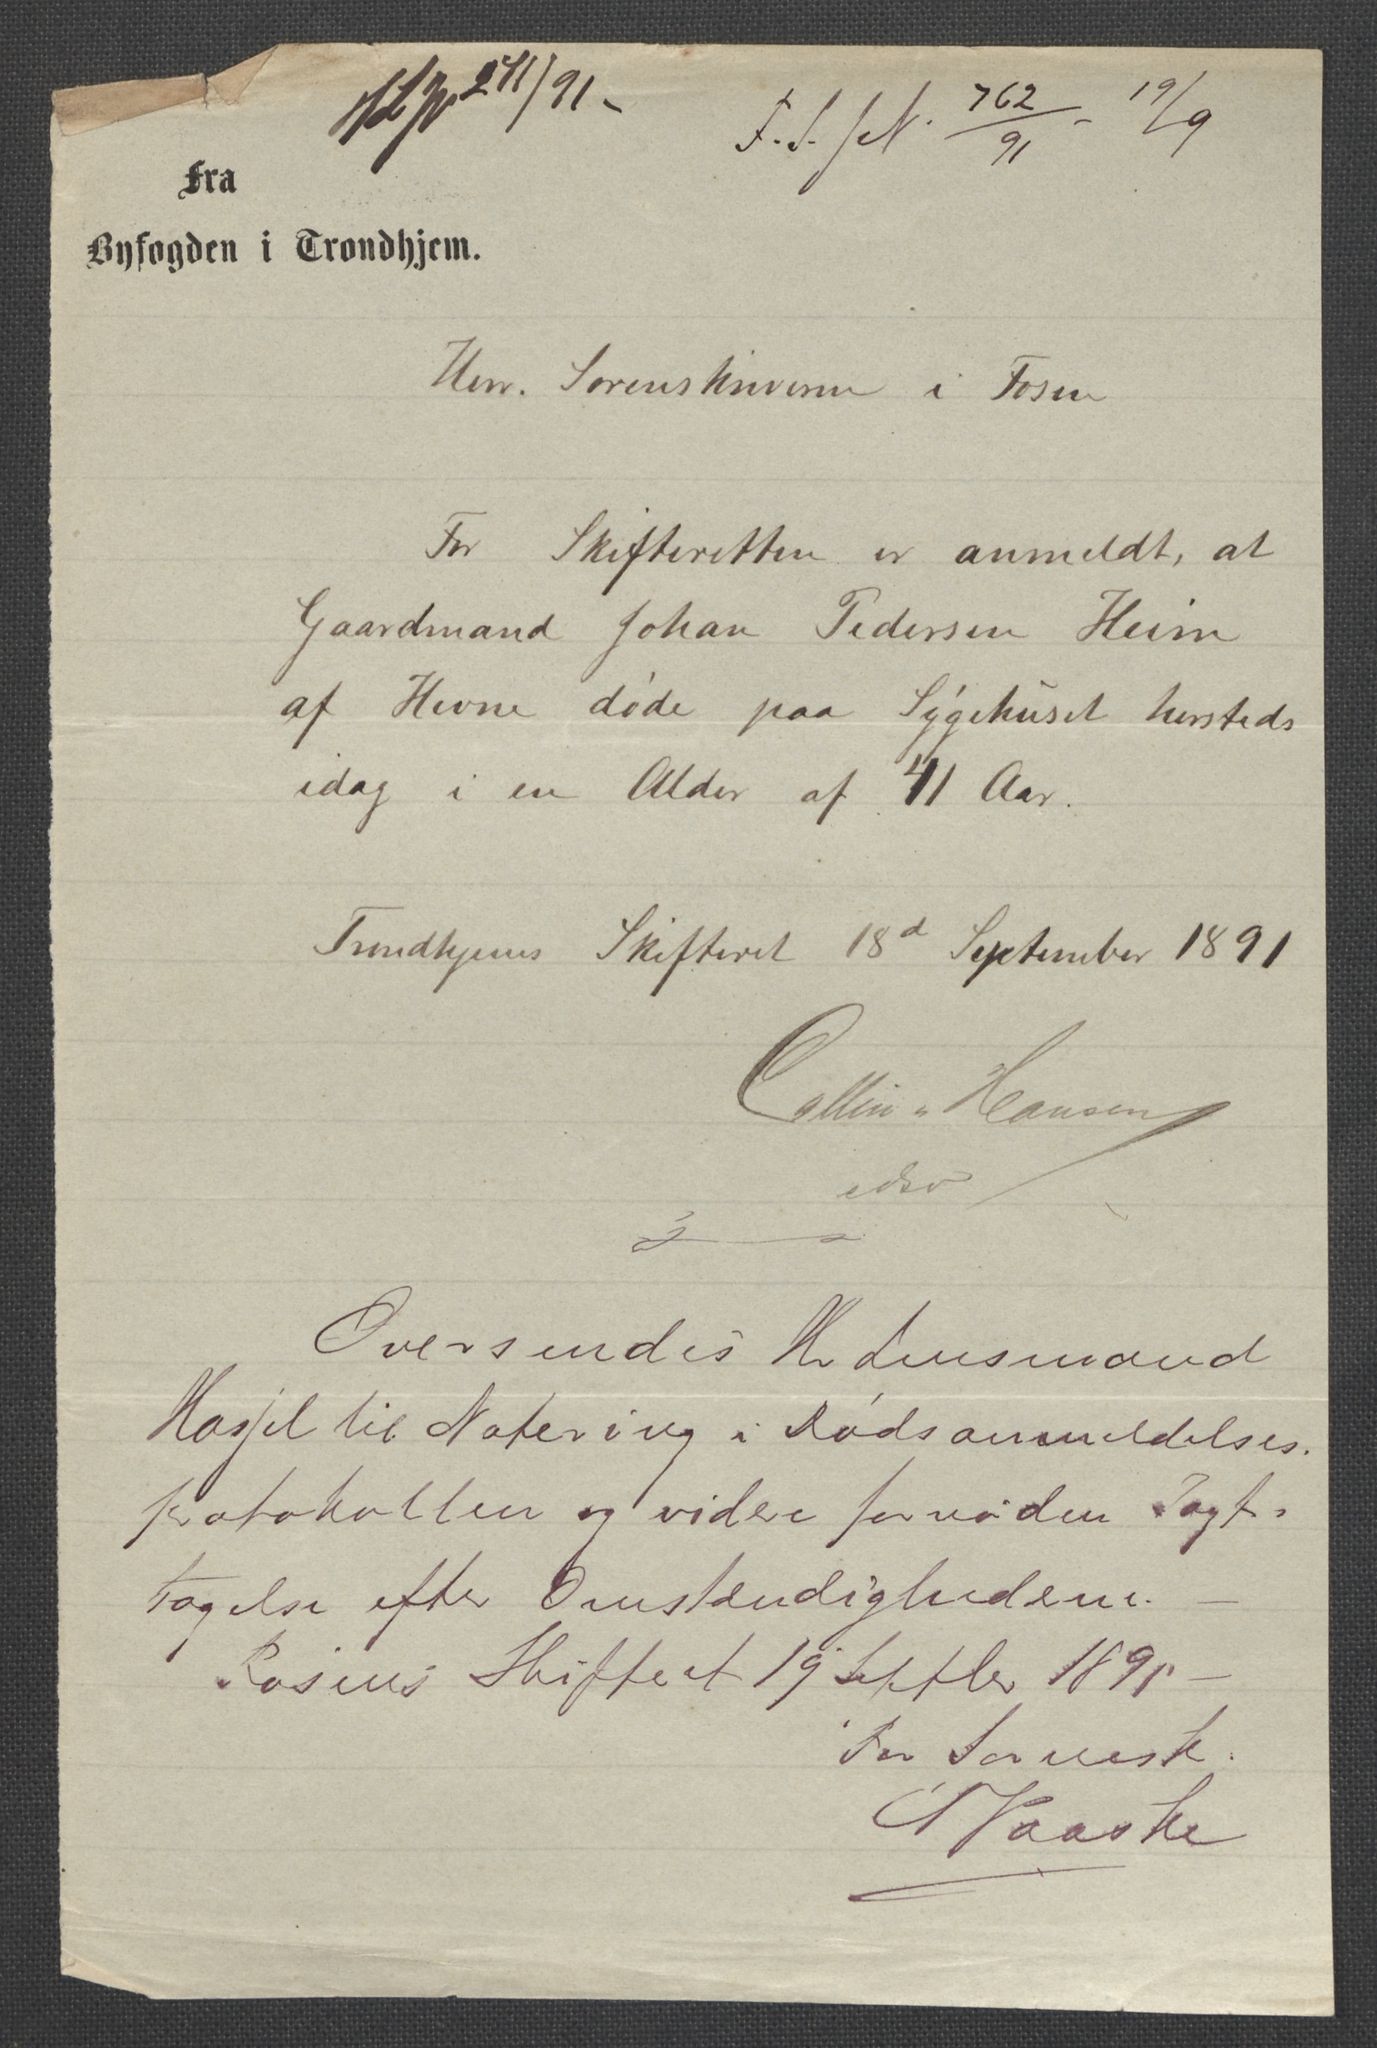 241/91 -
F. S. JN. 762/91 - 19/9
Fra
Byfogden i Trondhjem.
Herr. Sorenskriveren i Fosen
For Skifteretten er anmeldt, at
Gaardmand Johan Pedersen Heim
af Hevne døde paa Sygehuset hersteds
idag i en Alder af 41 Aar.
Trondhjems Skifteret 18d September 1891
Collin Hansen
Oversendes Hr Lensmand
Hasfel til Notering i Dødsanmeldelses-
protokollen og videre fornøden Iagt-
tagelse efter Omstændighederne. -
Fosens Skifteret 19 Septbr 1891 -
For Sorensk.
Vaaske